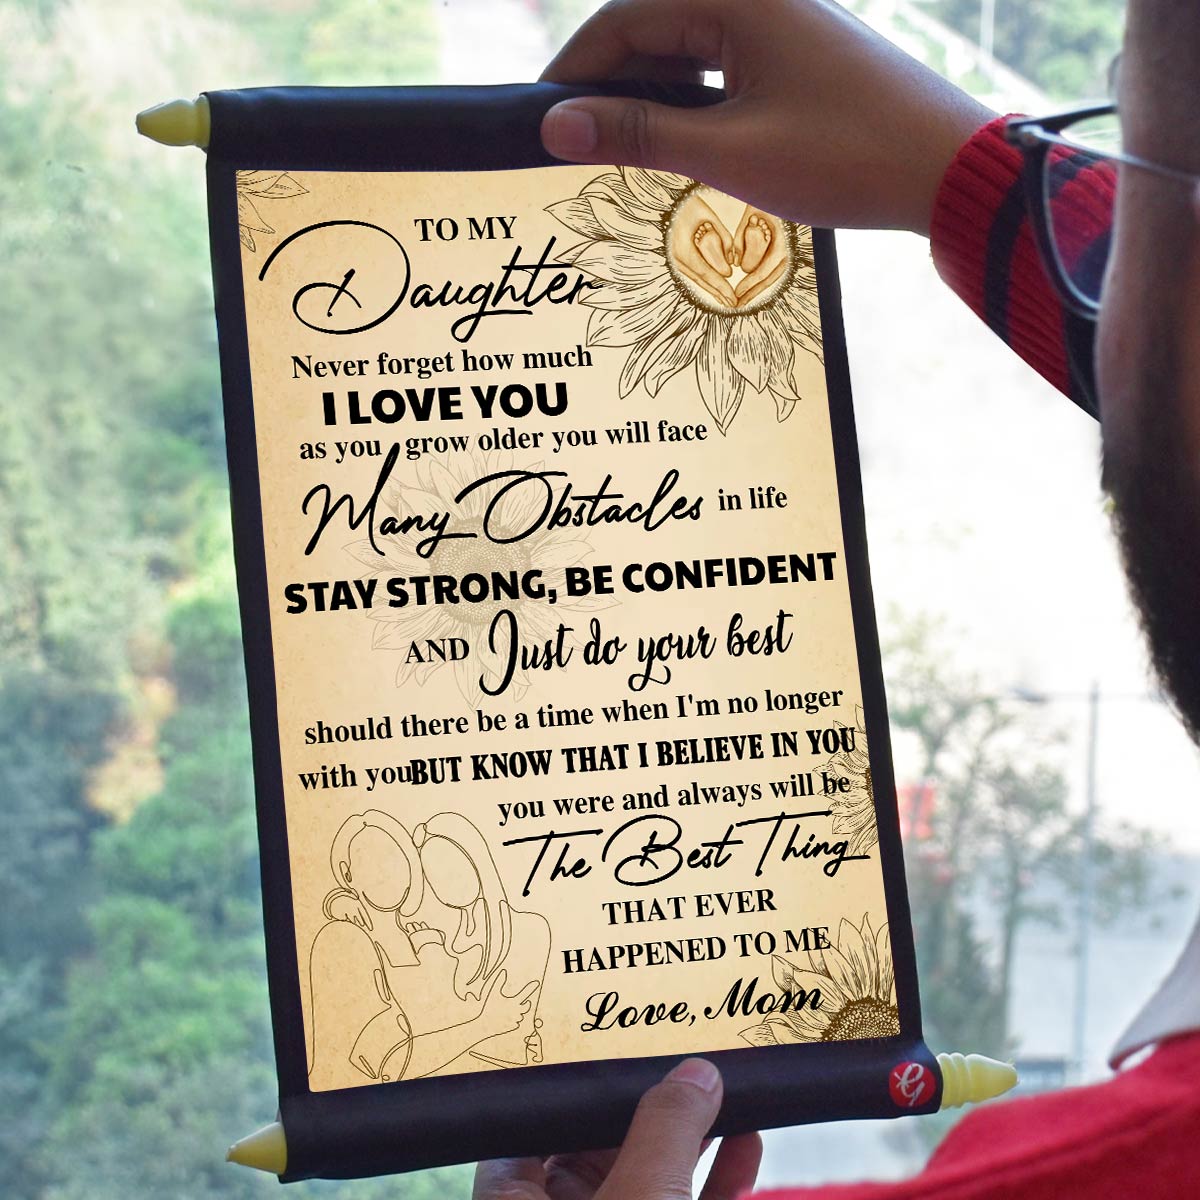 TO MY
Daughter
Never forget how much
I LOVE YOU
as you grow older you will face
Many Obstacles in life
STAY STRONG, BE CONFIDENT
AND Just do your best
should there be a time when I'm no longer
with you BUT KNOW THAT I BELIEVE IN YOU
you were and always will be
The Best Thing
THAT EVER
HAPPENED TO ME
Love, Mom